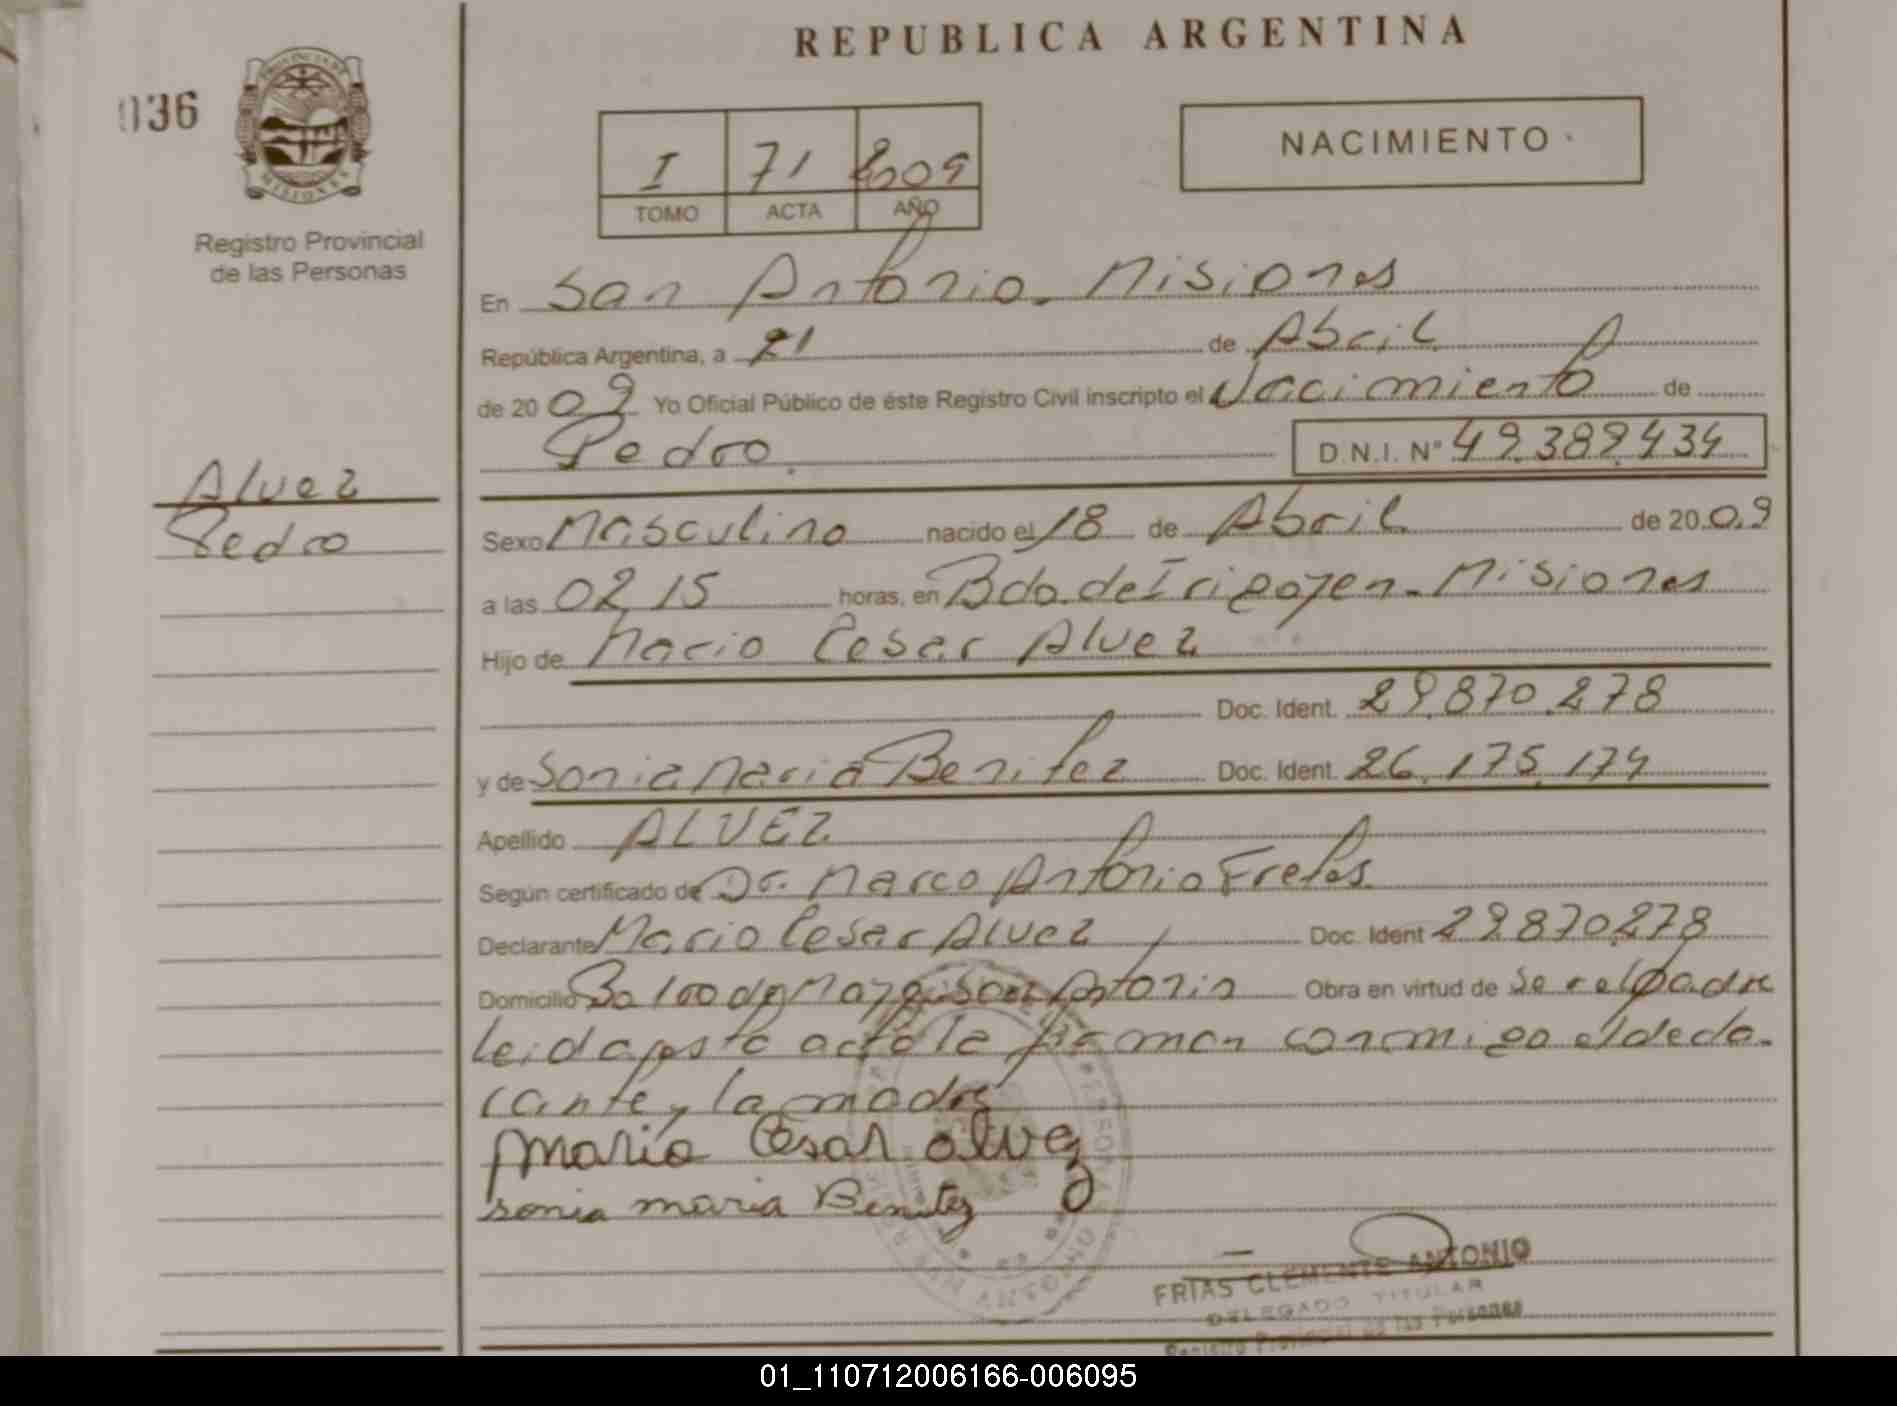 REPUBLICA ARGENTINA
036
PROVINCIA DE
MISIONES
Registro Provincial
de las Personas
I 71 2009
TOMO ACTA AÑO
NACIMIENTO
En San Antonio. Misiones
República Argentina, a 21 de Abril
de 2009 Yo Oficial Público de éste Registro Civil inscripto el Nacimiento de
Pedro. D.N.I. N° 49.389.434
Alvez
Pedro
Sexo Masculino nacido el 18 de Abril de 2009
a las 02,15 horas, en Bdo. de Irigoyen. Misiones
Hijo de Mario Cesar Alvez
Doc. Ident. 29.870.278
y de Sonia Maria Benitez Doc. Ident. 26.175.174
Apellido ALVEZ
Según certificado de Dr. Marco Antonio Fretes.
Declarante Mario Cesar Alvez Doc. Ident 29.870.278
Domicilio San Antonio Obra en virtud de ser el padre
leida esta acta la firman conmigo el decla-
rante y la madre
Mario Cesar Alvez
Sonia maria Benitez
FRIAS CLEMENTE ANTONIO
DELEGADO TITULAR
Registro Provincial de las Personas
01_110712006166-006095